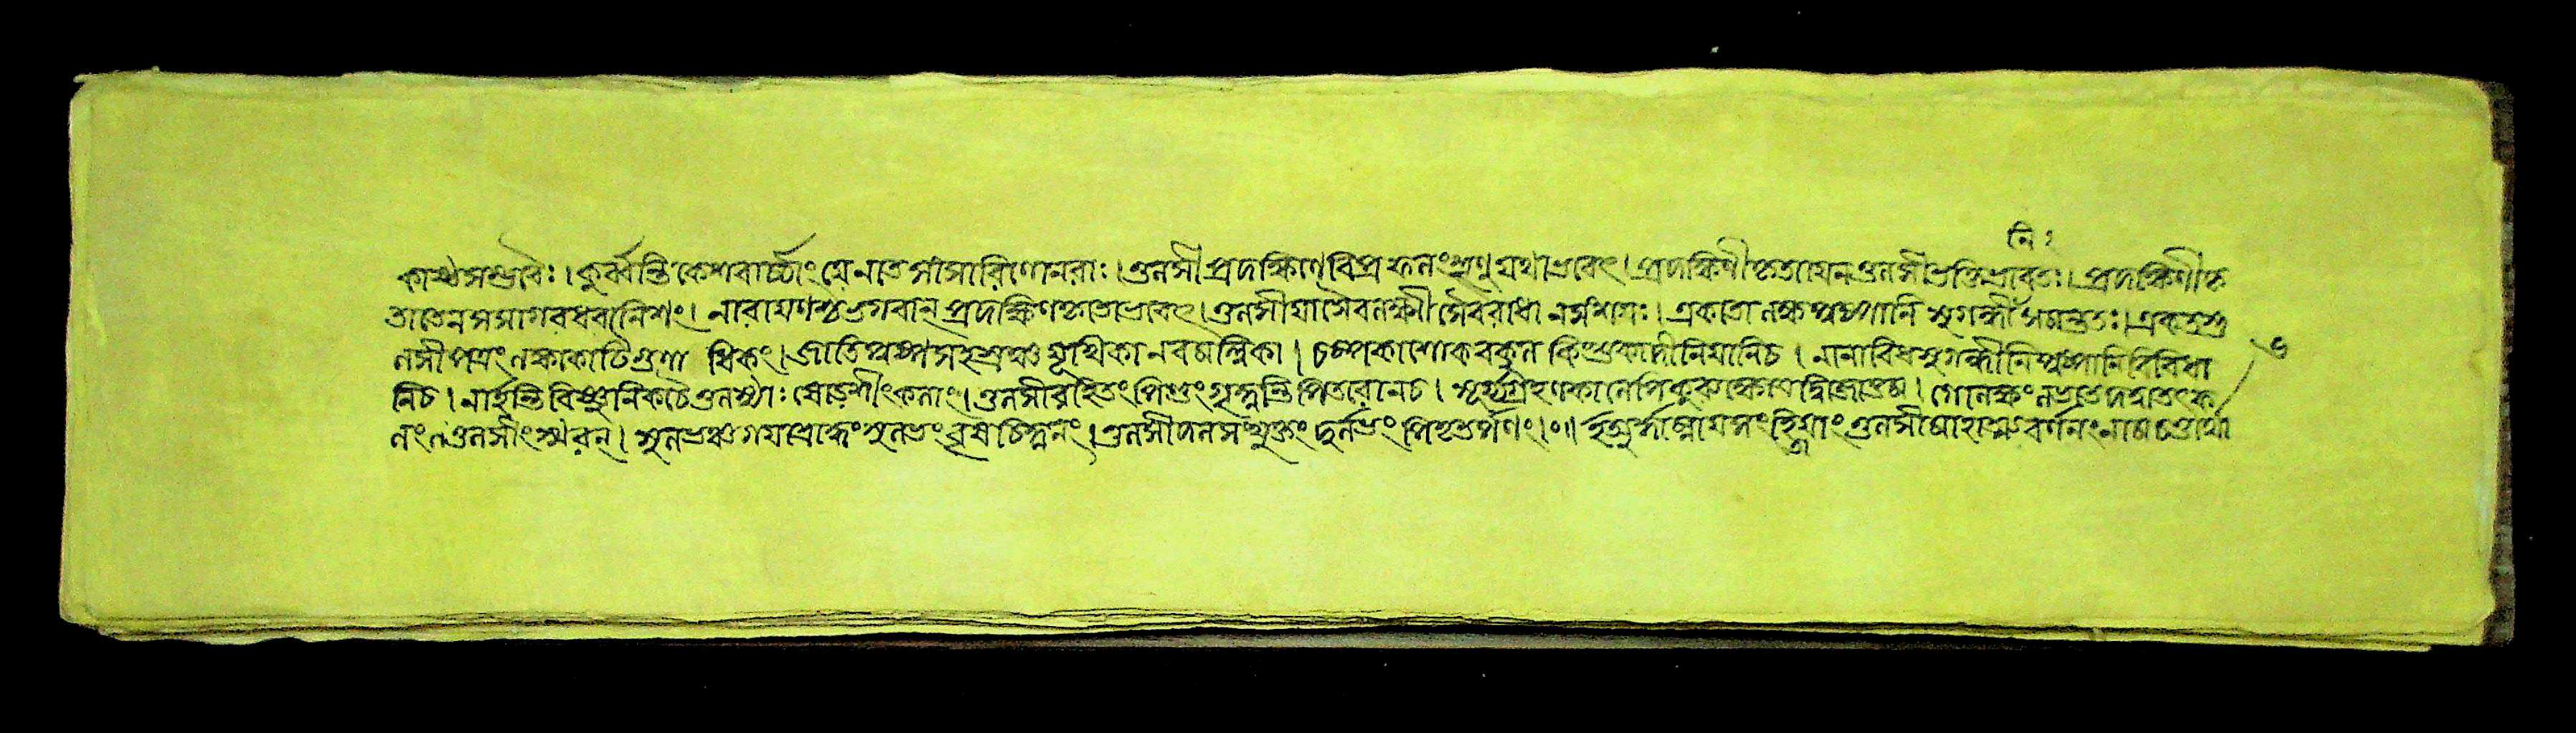 নিঃ
কাষ্ঠসম্ভবৈঃ। কুর্ব্বন্তি কেশবার্চ্চাং যে নাত্র সাংসারিণোনরাঃ। তুলসী প্রদক্ষিণে বিপ্র ফলং শৃণু যথাভবেৎ। প্রদক্ষিণীকৃতা যেন তুলসী ভক্তিভাবতঃ। প্রদক্ষিণীকৃ
তাতেন সসাগরধরানিশং। নারায়ণশ্চ ভগবান্ প্রদক্ষিণকৃতোভবেৎ। তুলসী যা সৈব লক্ষ্মীঃ সৈব রাধা ন সংশয়ঃ। একতো লক্ষপুষ্পাণি সুগন্ধীনি সমন্ততঃ। একত্র তু
লসীপত্রং লক্ষকোটিগুণাধিকং। জাতিপুষ্পসহস্রঞ্চ যূথিকা নবমল্লিকা। চম্পকাশোকবকুল কিংশুকাদীনি যানি চ। নানাবিধসুগন্ধীনি পুষ্পাণি বিবিধা
নি চ। নার্হন্তি বিষ্ণুনিকটে তুলস্যাঃ ষোড়শীং কলাং। তুলসীরহিতং পিণ্ডং গৃহ্ণন্তি পিতরো ন চ। সূর্য্যগ্রহণকালেপি কুরুক্ষেত্রে দ্বিজোত্তম। গোলক্ষং
লং তুলসীং স্মরন্। সুলভঞ্চ গয়াশ্রাদ্ধং সুলভং বৃষ তুলসীদলসংযুক্তং দুর্লভং পিতৃতর্পণং॥ তুলসীমাহাত্ম্যবর্ণনং নাম চতুর্থো